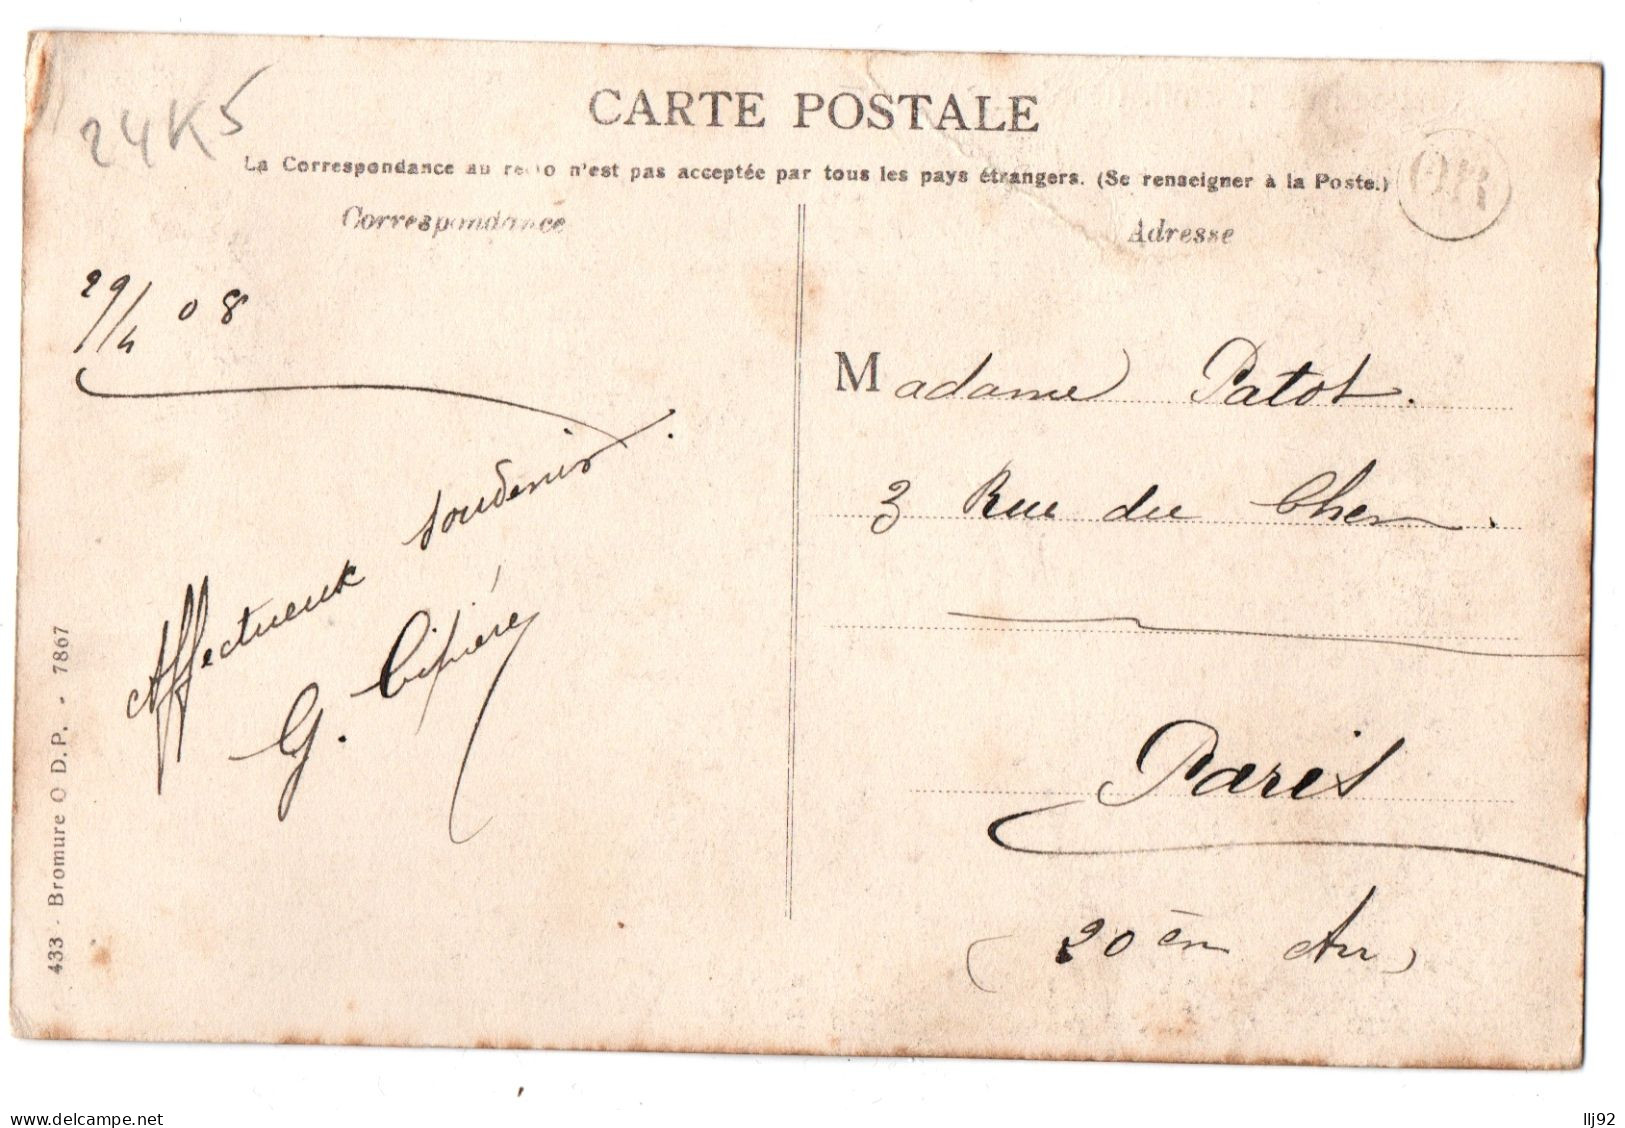 24K5
CARTE POSTALE
La Correspondance au recto n'est pas acceptée par tous les pays étrangers. (Se renseigner à la Poste.)
OR
Correspondance
Adresse
29/4 08
Affectueux souvenir.
G.
Madame Patot.
3 Rue du Cher.
Paris
(20 èm Arr)
433 - Bromure O D.P. - 7867
www.delcampe.net
llj92